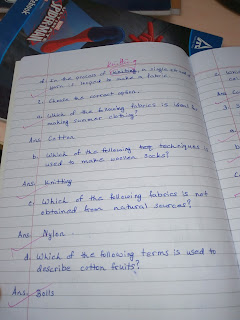 knitting
d. In the process of knitting, a single strand
yarn is looped to make a fabric.
2. Choose the correct option.
a. Which of the following fabrics is ideal
making summer clothing?
Ans: Cotton
b. Which of the following techniques is
used to make woolen socks?
Ans: Knitting
c. Which of the following fabrics is not
obtained from natural sources?
Ans. Nylon
d. Which of the following terms is used to
describe cotton fruits?
Ans: Boils